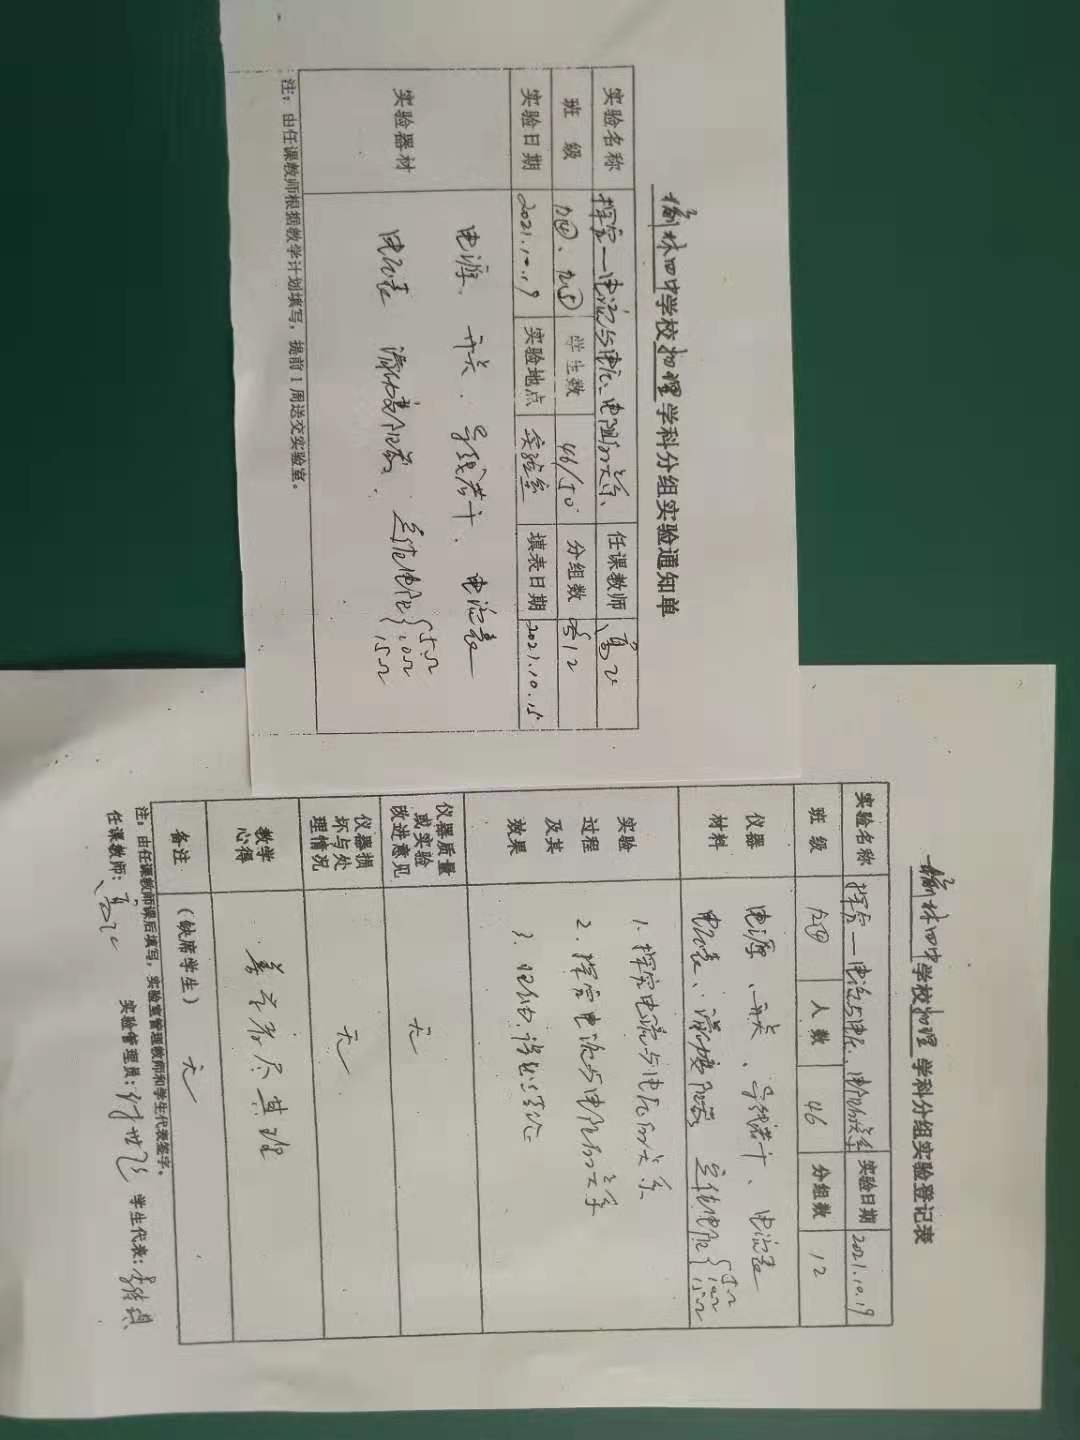 榆林四中学校物理学科分组实验通知单
实验名称 探究—电流与电压、电阻的关系 任课教师 高飞
班 级 九④、九⑤ 学生数 46/50 分组数 各12
实验日期 2021.10.19 实验地点 实验室 填表日期 2021.10.15
实验器材
电源、开关、导线若干、电流表
电压表 滑动变阻器、定值电阻 5Ω 10Ω 15Ω
注：由任课教师根据教学计划填写，提前1周送交实验室。
榆林四中学校物理学科分组实验登记表
实验名称 探究—电流与电压、电阻的关系 实验日期 2021.10.19
班 级 九④ 人 数 46 分组数 12
仪器材料
电源、开关、导线若干、电流表
电压表、滑动变阻器 定值电阻 5Ω 10Ω 15Ω
实验过程及其效果
1. 探究电流与电压的关系
2. 探究电流与电阻的关系
3. 归纳、得出结论
仪器质量或实验改进意见 无
仪器损坏与处理情况 无
教学心得
备注 （缺席学生） 无
注：由任课教师课后填写，实验室管理教师和学生代表签字。
任课教师：高飞 实验管理员： 学生代表：